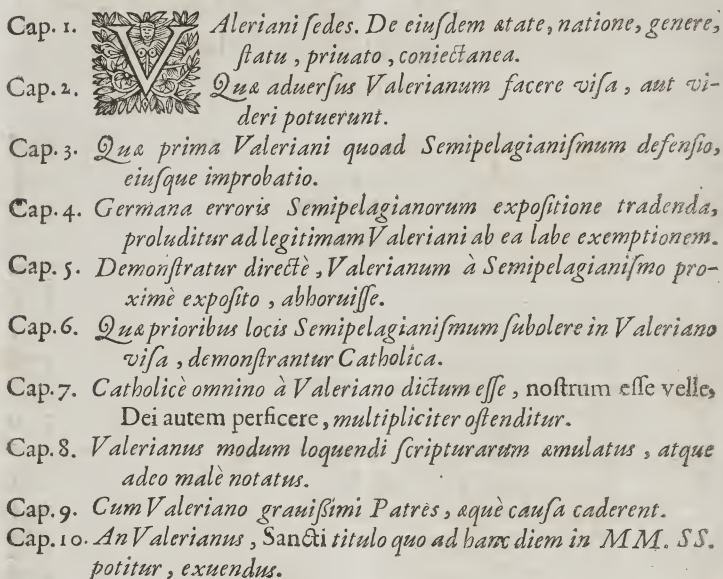 Cap. 1. VAleriani ſedes. De eiuſdem ætate, natione, genere,
ſtatu, priuato, coniectanea.
Cap. 2. Quæ aduerſus Valerianum facere viſa, aut vi-
deri potuerunt.
Cap. 3. Quæ prima Valeriani quoad Semipelagianiſmum defenſio,
eiuſque improbatio.
Cap. 4. Germana erroris Semipelagianorum expoſitione tradenda,
proluditur ad legitimam Valeriani ab ea labe exemptionem.
Cap. 5. Demonſtratur directè, Valerianum à Semipelagianiſmo pro-
ximè expoſito, abhoruiſſe.
Cap. 6. Quæ prioribus locis Semipelagianiſmum ſubolere in Valeriano
viſa, demonſtrantur Catholica.
Cap. 7. Catholicè omnino à Valeriano dictum eſſe, noſtrum eſſe velle,
Dei autem perficere, multipliciter oſtenditur.
Cap. 8. Valerianus modum loquendi ſcripturarum æmulatus, atque
adeo malè notatus.
Cap. 9. Cum Valeriano grauiſsimi Patres, æquè cauſa caderent.
Cap. 10. An Valerianus, Sancti titulo quo ad hanc diem in MM. SS.
potitur, exuendus.